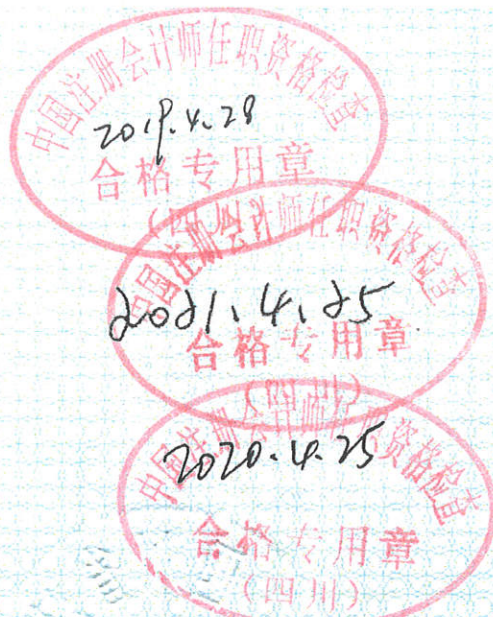 中国注册会计师任职资格检查
2019.4.28
合格专用章
(四川)
中国注册会计师任职资格检查
2021.4.25
合格专用章
(四川)
中国注册会计师任职资格检查
2020.4.25
合格专用章
(四川)